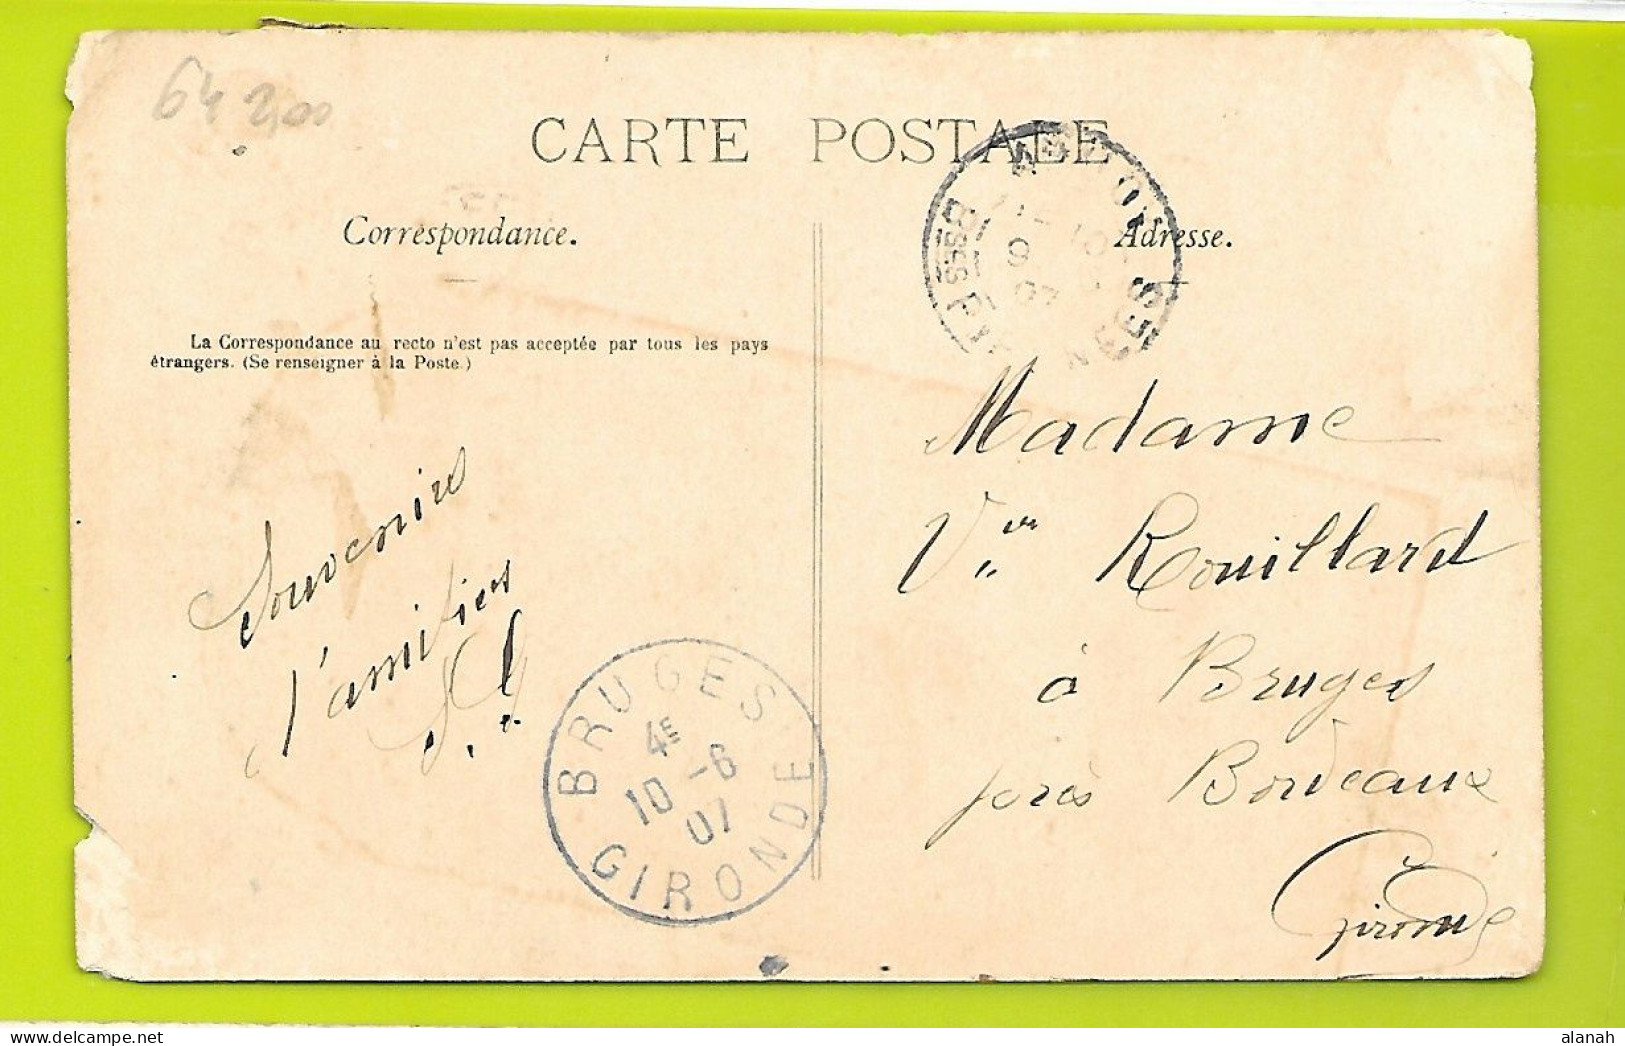 64 2,00
CARTE POSTALE
Correspondance.
Adresse.
La Correspondance au recto n'est pas acceptée par tous les pays
étrangers. (Se renseigner à la Poste.)
BSSES PYRÉNÉES
9
07
Madame
Vve Rouillard
à Bruges
près Bordeaux
Gironde
Souvenirs
d'amitiés
BRUGES
4E
10 -6
07
GIRONDE
alanah